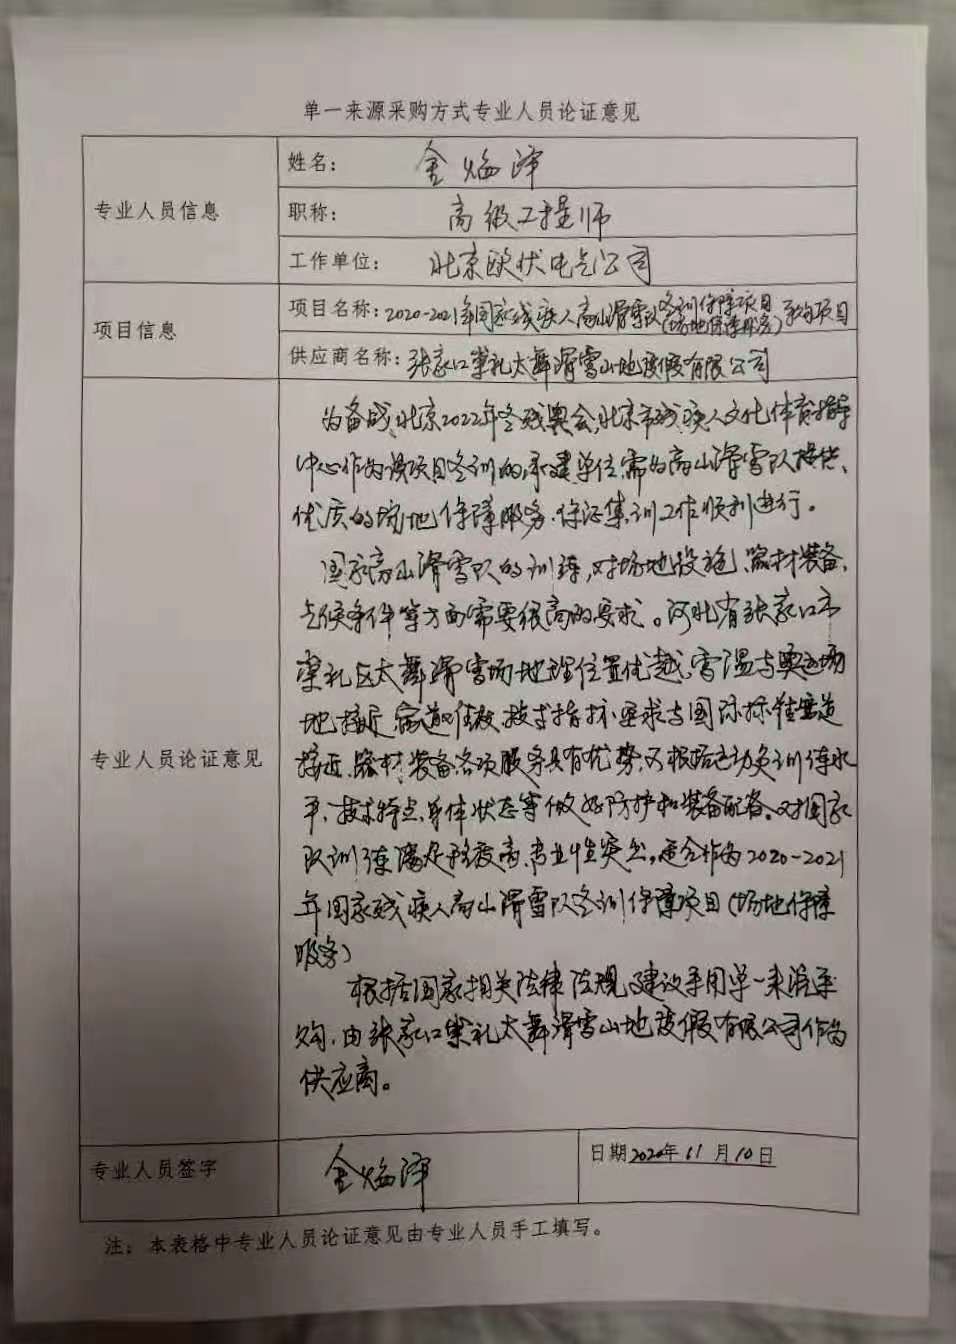 单一来源采购方式专业人员论证意见
专业人员信息
姓名：金焔泽
职称：高级工程师
工作单位：北京欧伏电气公司
项目信息
项目名称：2020-2021年国家残疾人高山滑雪队冬训保障项目（场地保障服务）采购项目
供应商名称：张家口崇礼太舞滑雪山地度假有限公司
专业人员论证意见
为备战北京2022年冬残奥会，北京市残疾人文化体育指导
中心作为该项目冬训的承建单位，需为高山滑雪队提供
优质的场地保障服务，保证集训工作顺利进行。
国家高山滑雪队的训练，对场地设施、器材装备、
气候条件等方面需要很高的要求。河北省张家口市
崇礼区太舞滑雪场地理位置优越，雪温与奥运场
地接近，雪道 技术指标要求与国际标准赛道
接近，器材装备各项服务具有优势，可根据运动员训练水
平、技术特点、身体状态等做好防护和装备配备。对国家
队训练满足程度高，专业性突出，适合作为2020-2021
年国家残疾人高山滑雪队冬训保障项目（场地保障
服务）
根据国家相关法律法规，建议采用单一来源采
购，由张家口崇礼太舞滑雪山地度假有限公司作为
供应商。
专业人员签字
金焔泽
日期2020年11月10日
注：本表格中专业人员论证意见由专业人员手工填写。